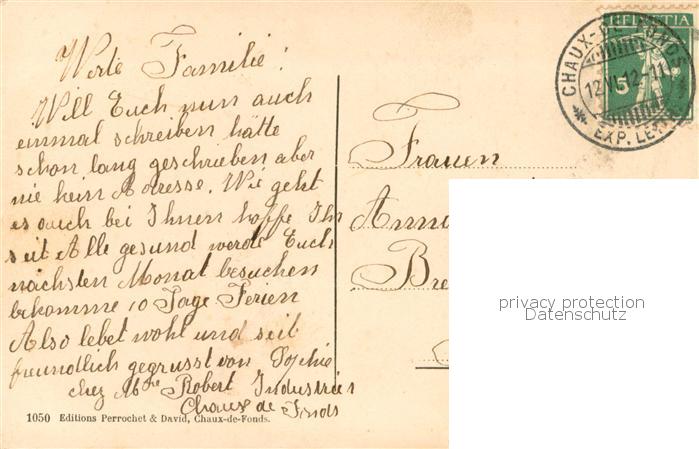 Werte Familie!
Will Euch nun auch
einmal schreiben hätte
schon lang geschrieben aber
nie kein Adresse. Wie geht
es auch bei Ihnen hoffe Ihr
seit Alle gesund werde Euch
nächsten Monat besuchen
bekomme 10 Tage Ferien
Also lebet wohl und seit
freundlich gegrüsst von Sophie
chez Mme Robert Industrie
Chaux de Fonds
1050 Editions Perrochet & David, Chaux-de-Fonds.
HELVETIA
5
CHAUX-DE-FONDS
12.VI.12-11
EXP. LETT.
Frauen
Anna
Bre
privacy protection
Datenschutz